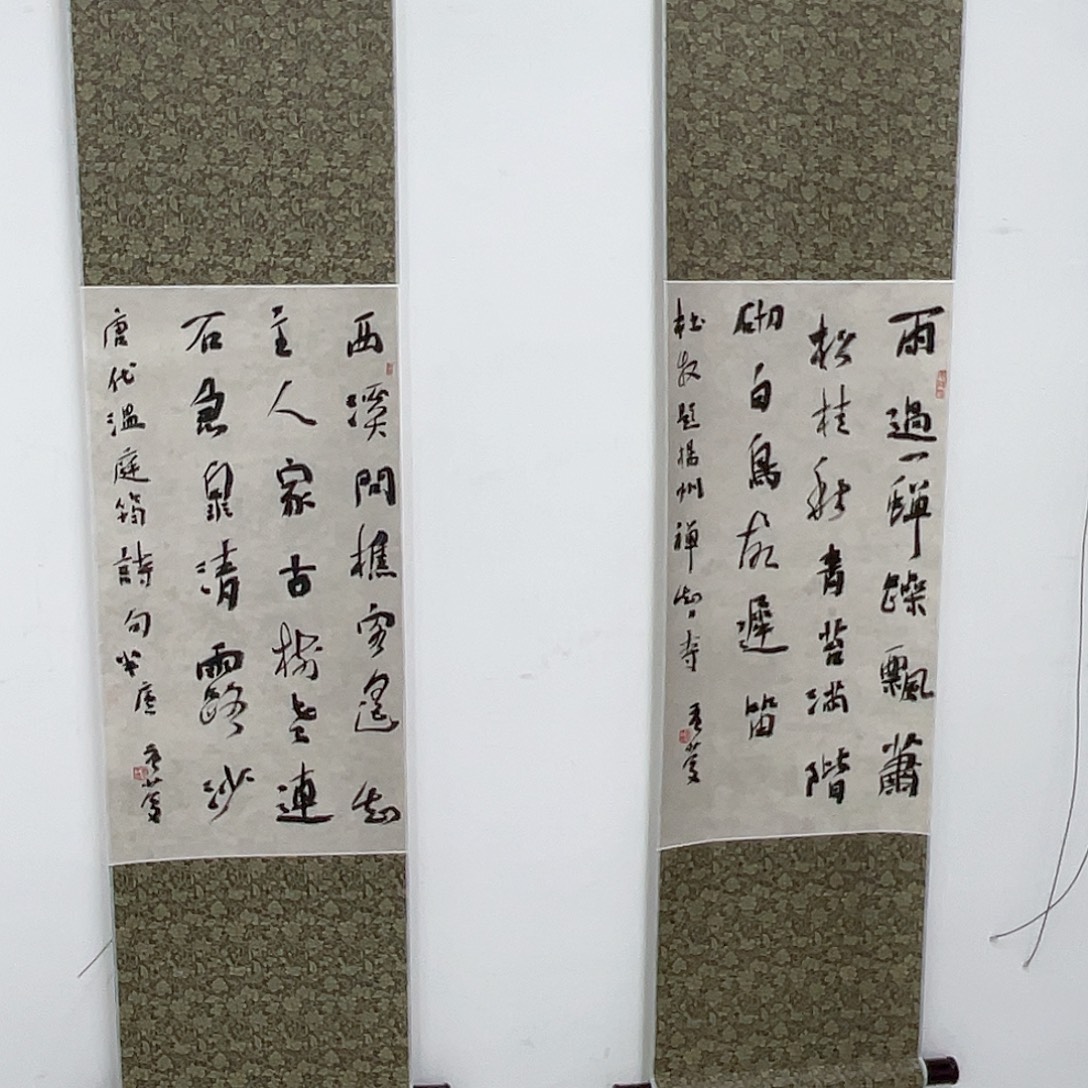 雨過一蟬噪飄蕭
松桂秋青苔滿階
砌白鳥故遲留
杜牧題揚州禪智寺
西溪問樵客遙知
主人家古樹老連
石急泉清露沙
唐代溫庭筠詩句